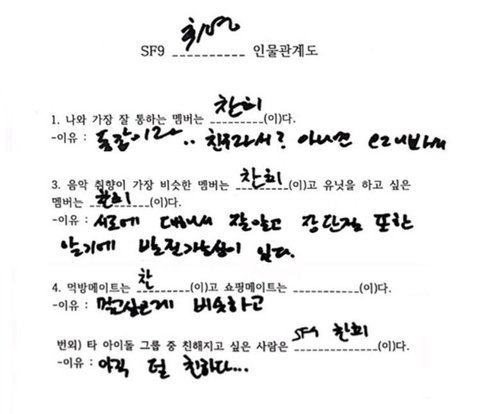 SF9 휘영 인물관계도
1. 나와 가장 잘 통하는 멤버는 찬희(이)다.
-이유 : 동갑이라.. 친구라서? 아니면
3. 음악 취향이 가장 비슷한 멤버는 찬희(이)고 유닛을 하고 싶은
멤버는 찬희(이)다.
-이유 : 서로에 대해서 잘알고 장단점 또한
알기에 발전가능성이 있다.
4. 먹방메이트는 찬(이)고 쇼핑메이트는 ____________(이)다.
-이유 : 먹고싶은게 비슷하고
번외) 타 아이돌 그룹 중 친해지고 싶은 사람은 SF9 찬희(이)다.
-이유 : 아직 덜 친하다...